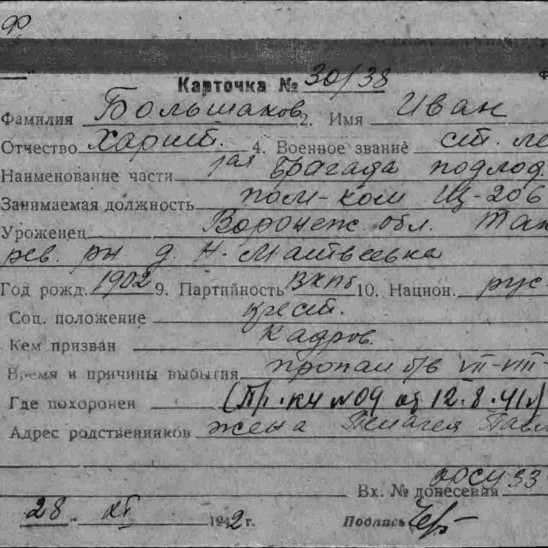 Ф
Карточка № 30/38
Фамилия Большаков 2. Имя Иван
Отчество Харит. 4. Военное звание ст. ле
Наименование части 1ая Бригада подлод.
Занимаемая должность пом-ком Щ-206
Уроженец Воронеж. обл. Так
рев. рн д. Н. Матвеевка
Год рожд. 1902 9. Партийность ВКПб 10. Национ. рус.
Соц. положение крест.
Кем призван Кадров.
Время и причины выбытия пропал б/в VII-VIII-
Где похоронен (Пр. КЧ №09 от 12.8.41г)
Адрес родственников жена Пелагея Павл
Вх. № донесения
28. XI 1942 г. Подпись